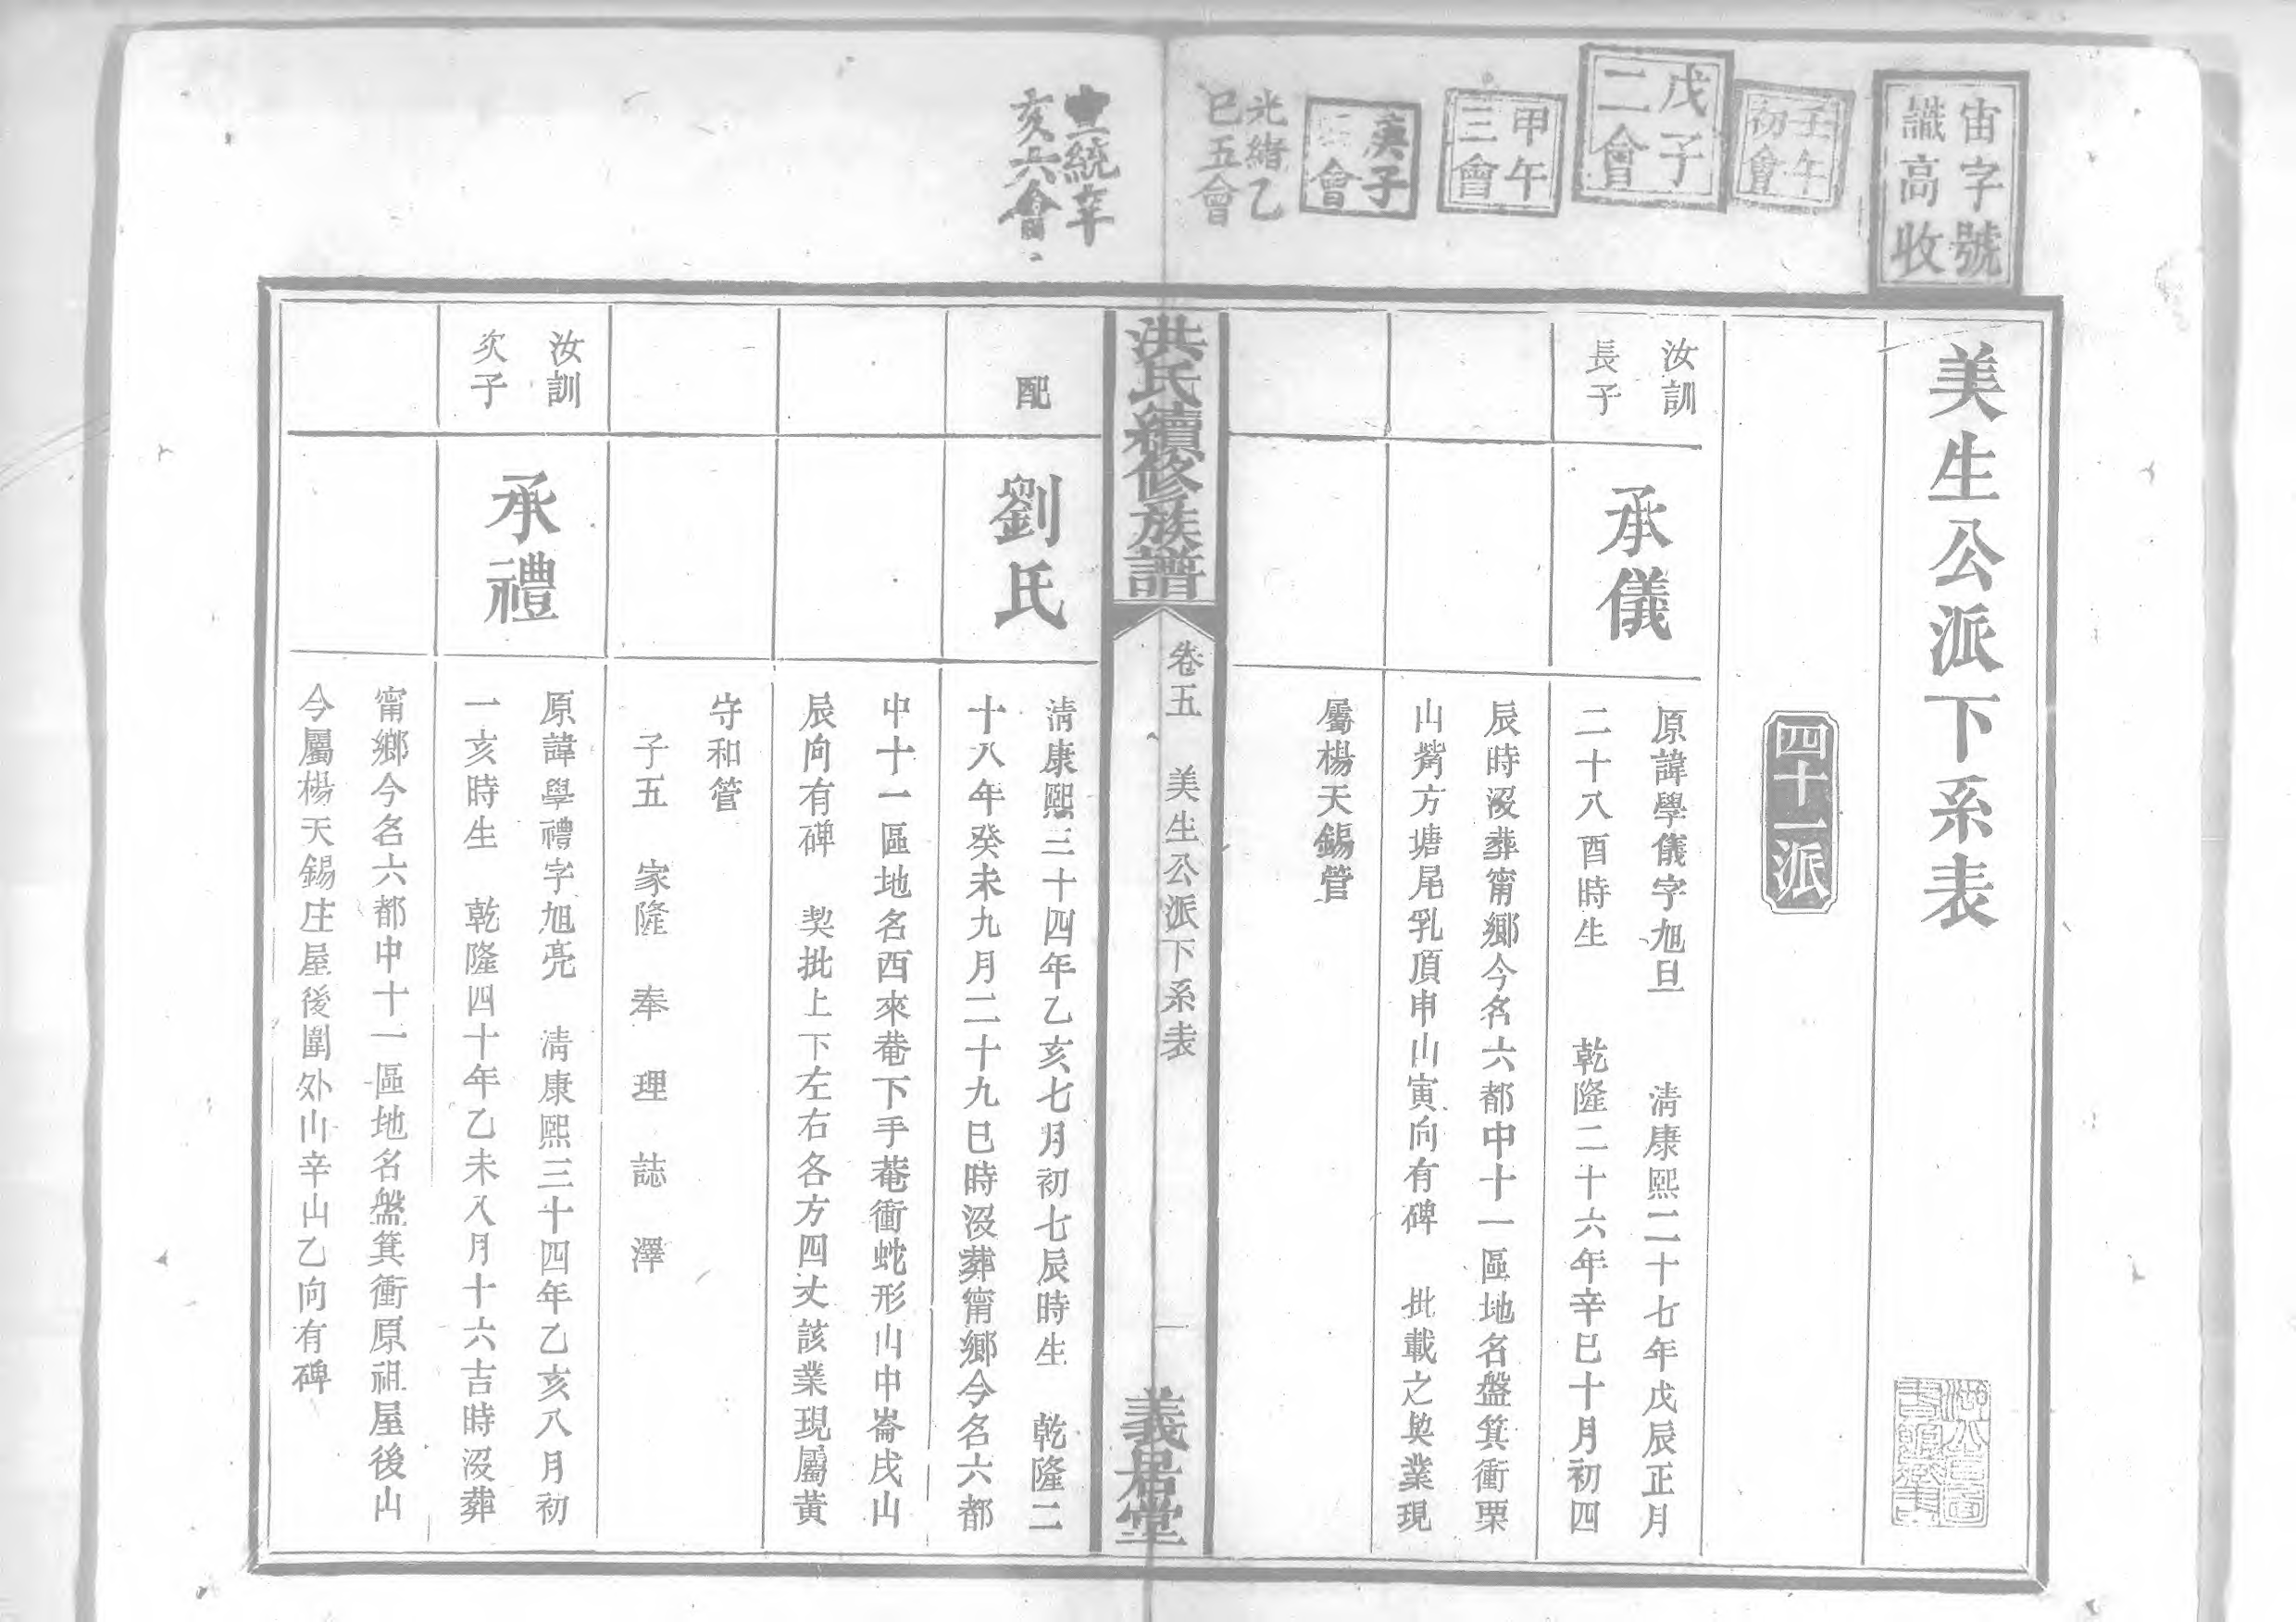 宙字號
識高收
壬午
初會
戊子
二會
甲午
三會
庚子
會
光緒乙
巳五會
宣統辛
亥六會
美生公派下系表
四十一派
汝訓
長子
承儀
原諱學儀字旭旦 淸康熙二十七年戊辰正月
二十八酉時生 乾隆二十六年辛巳十月初四
辰時沒葬甯鄉今名六都中十一區地名盤箕衝栗
山嘴方塘尾乳頂申山寅向有碑 批載之契業現
屬楊天錫管
洪氏續修族譜
卷五 美生公派下系表
一
義居堂
配
劉氏
淸康熙三十四年乙亥七月初七辰時生 乾隆二
十八年癸未九月二十九巳時沒葬甯鄉今名六都
中十一區地名西來菴下手菴衝蛇形山中崙戌山
辰向有碑 契批上下左右各方四丈該業現屬黃
守和管
子五 家隆 奉 理 誌 澤
汝訓
次子
承禮
原諱學禮字旭亮 淸康熙三十四年乙亥八月初
一亥時生 乾隆四十年乙未八月十六吉時沒葬
甯鄉今名六都中十一區地名盤箕衝原祖屋後山
今屬楊天錫庄屋後圍外山辛山乙向有碑